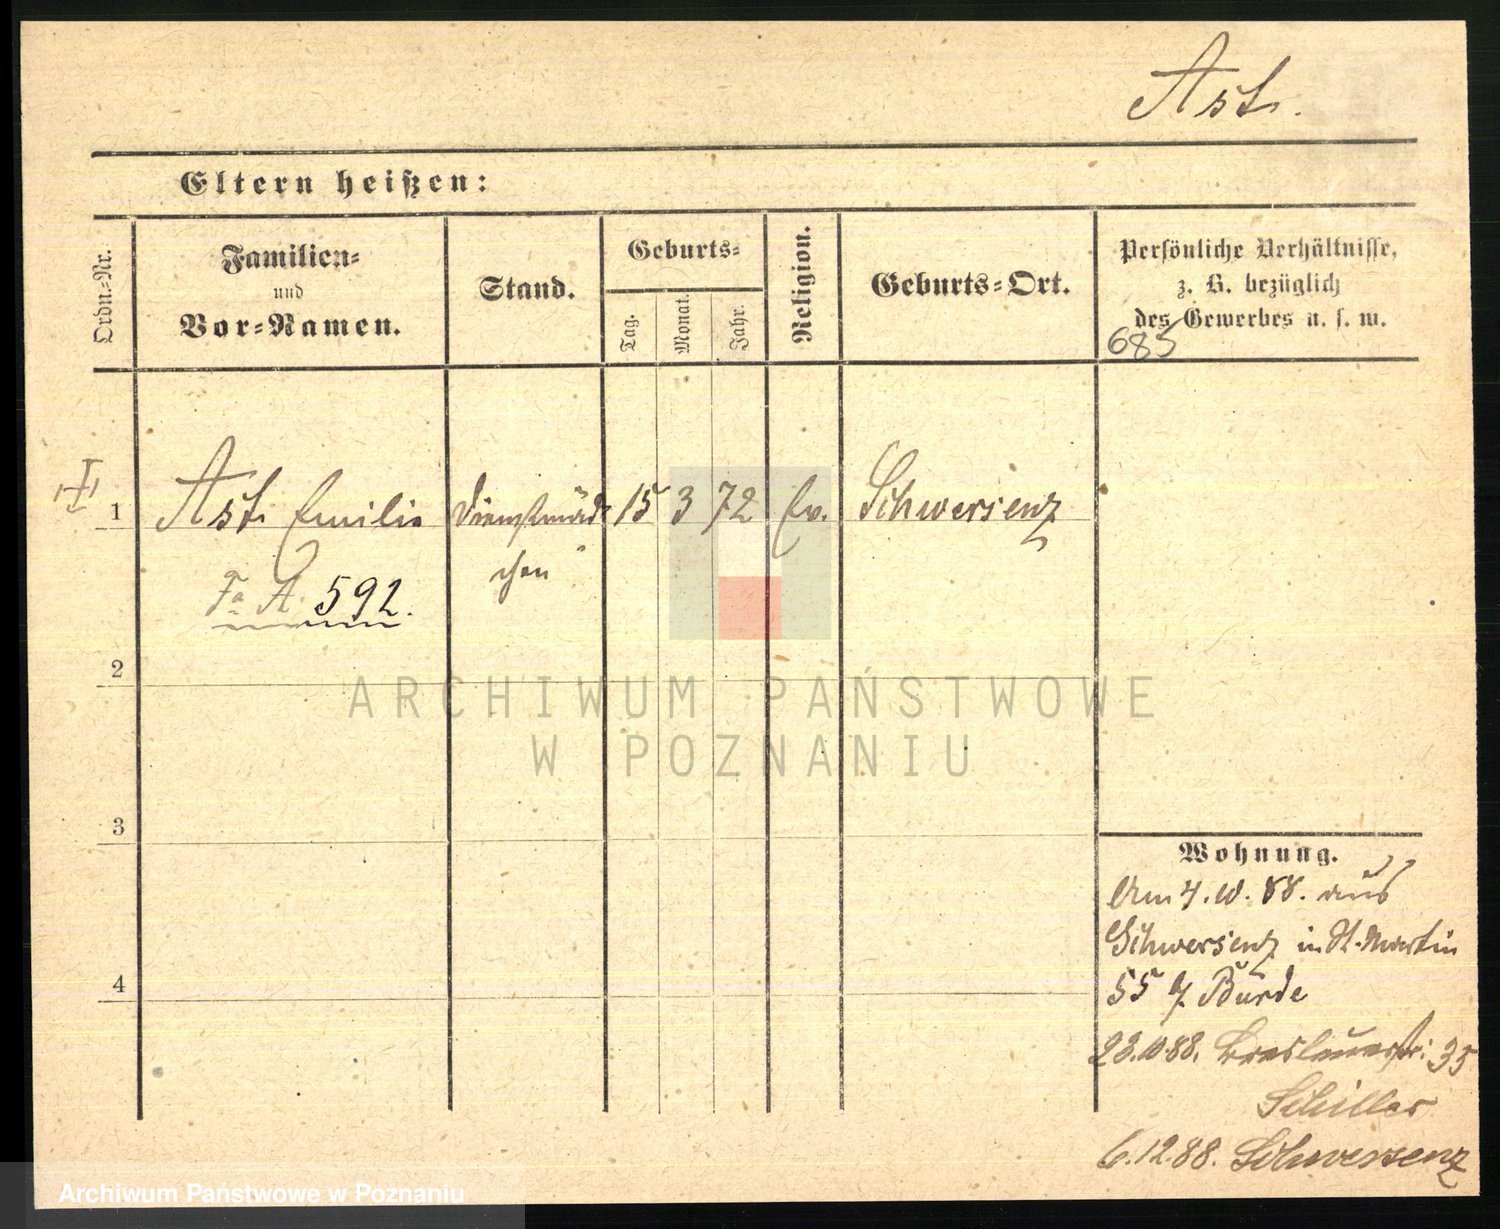 Ast.
Eltern heißen:
Ordn.-Nr.
Familien-
und
Vor-Namen.
Stand.
Geburts-
Tag.
Monat.
Jahr.
Religion.
Geburts-Ort.
Persönliche Verhältnisse,
z. B. bezüglich
des Gewerbes u. s. w.
685
1 Ast. Emilie Dienstmäd- 15 3 72 Ev. Schwersenz
chen
Fa A. 592.
2
ARCHIWUM PAŃSTWOWE
W POZNANIU
3
4
Wohnung.
Am 4. 10. 88. aus
Schwersenz in St. Martin
55 Bürde
23.10.88. Breslauerstr: 35
Schiller
6.12.88. Schwersenz
Archiwum Państwowe w Poznaniu